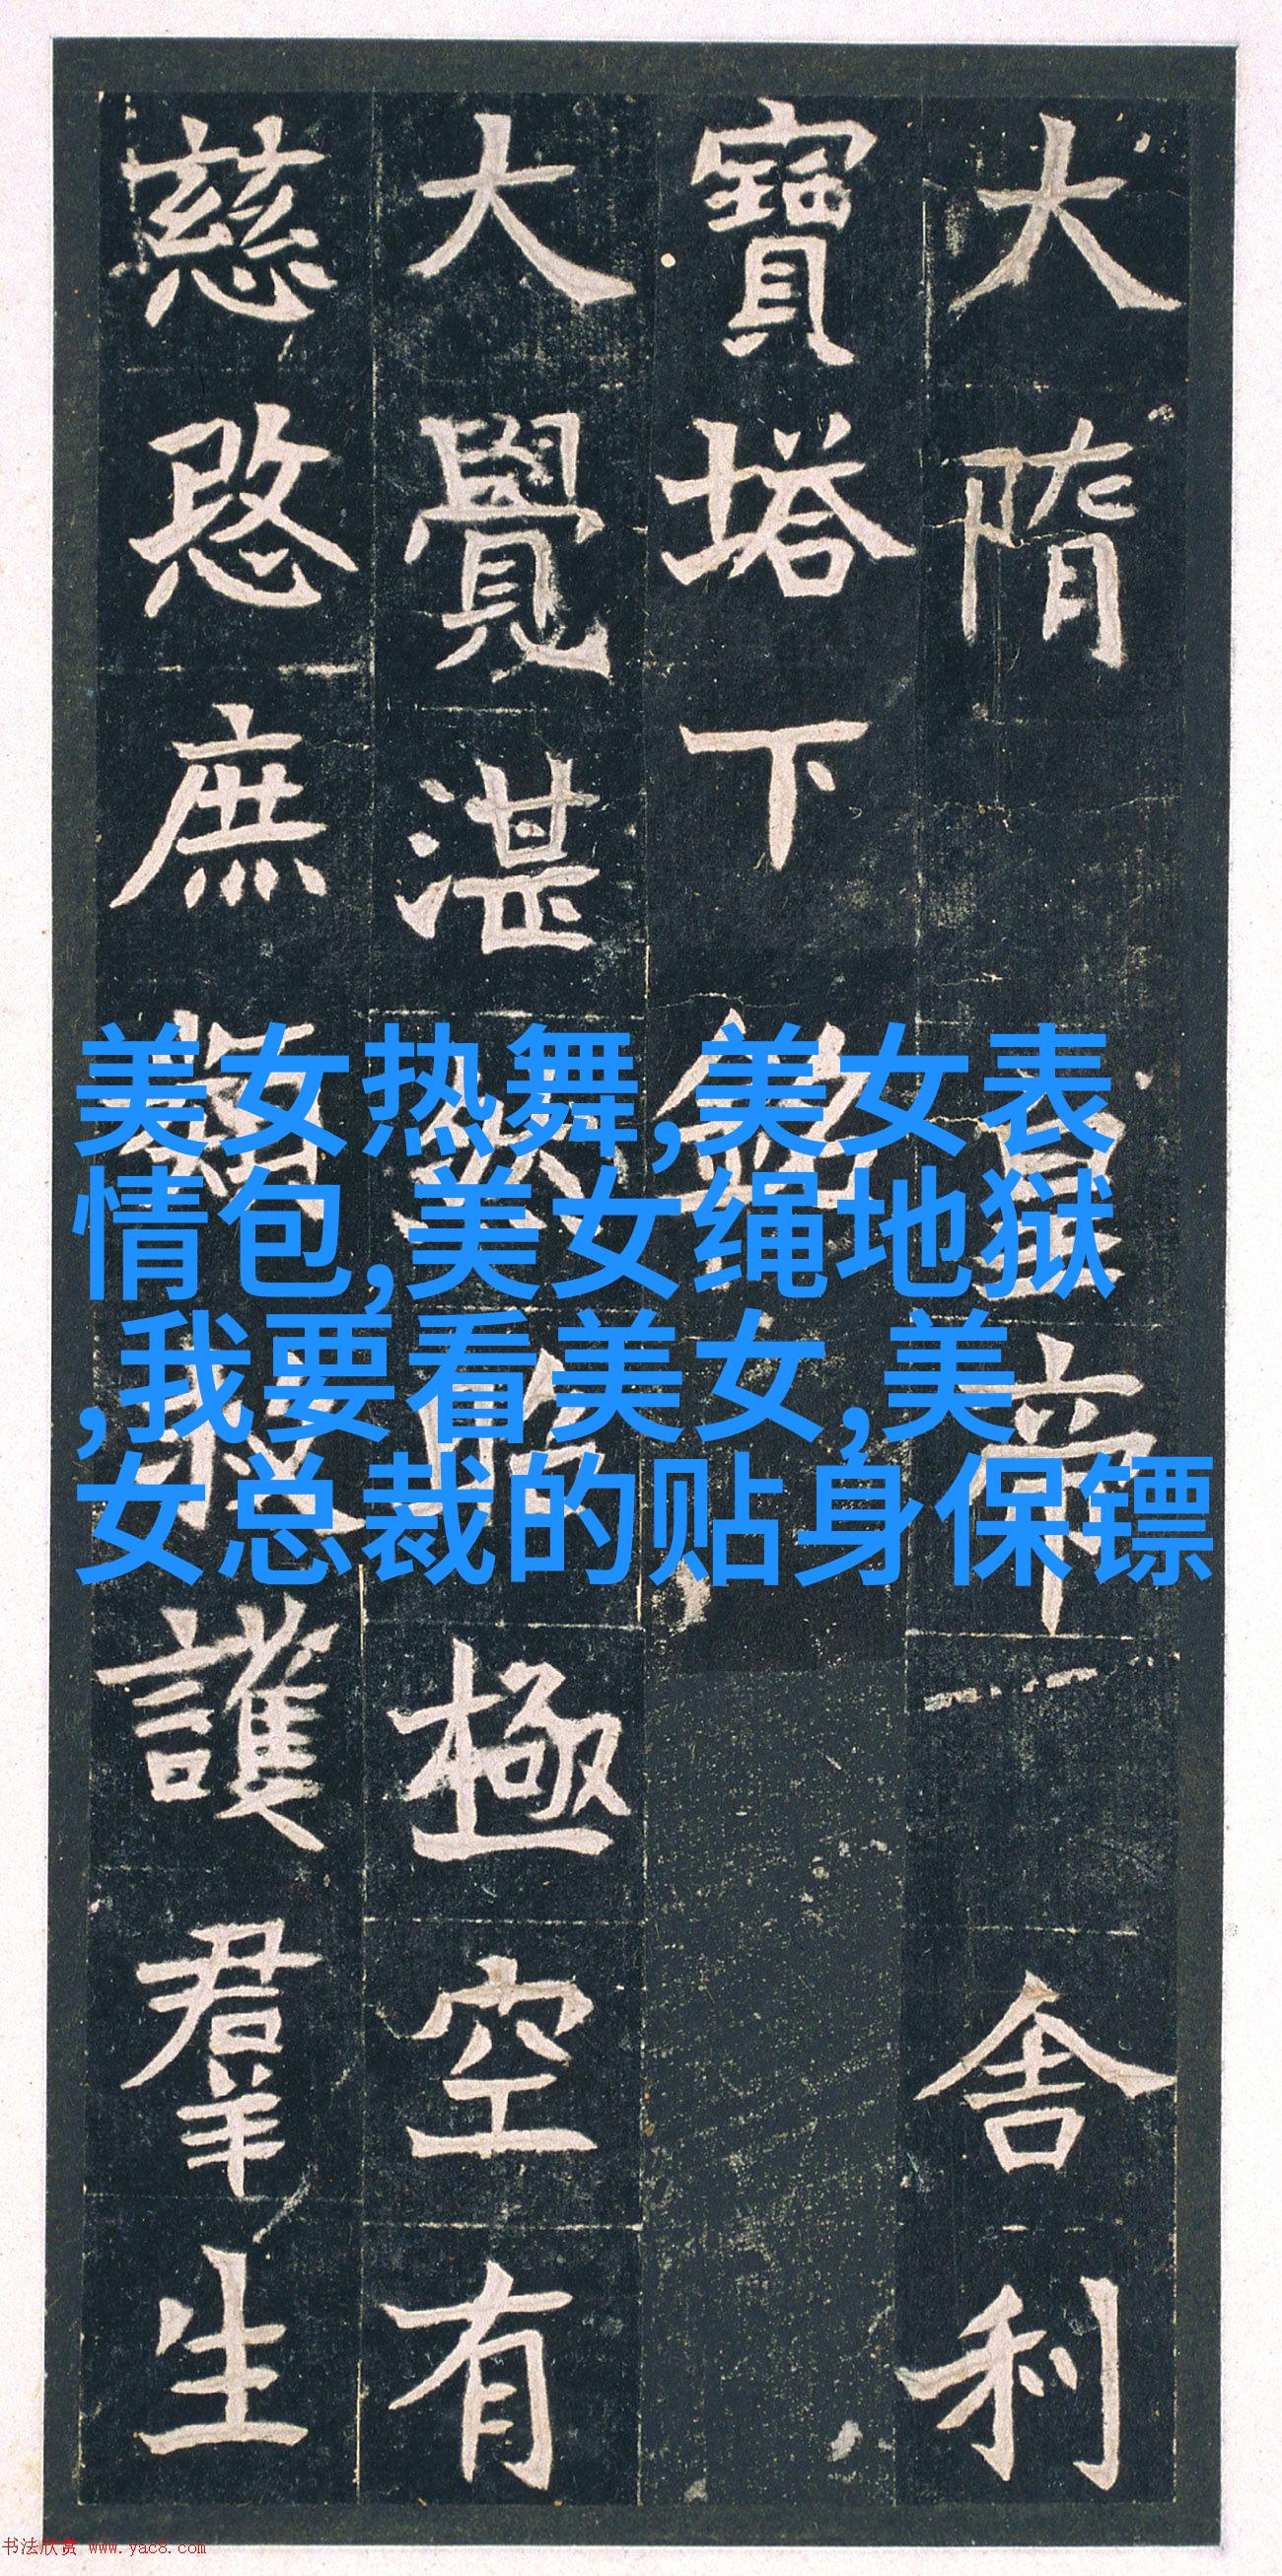 大隋皇帝舍利
寶塔下銘
大覺湛然昭極空有
慈愍庶類救護羣生
美女热舞,美女表
情包,美女绳地狱
,我要看美女,美
女总裁的贴身保镖
书法欣赏 www.yac8.com